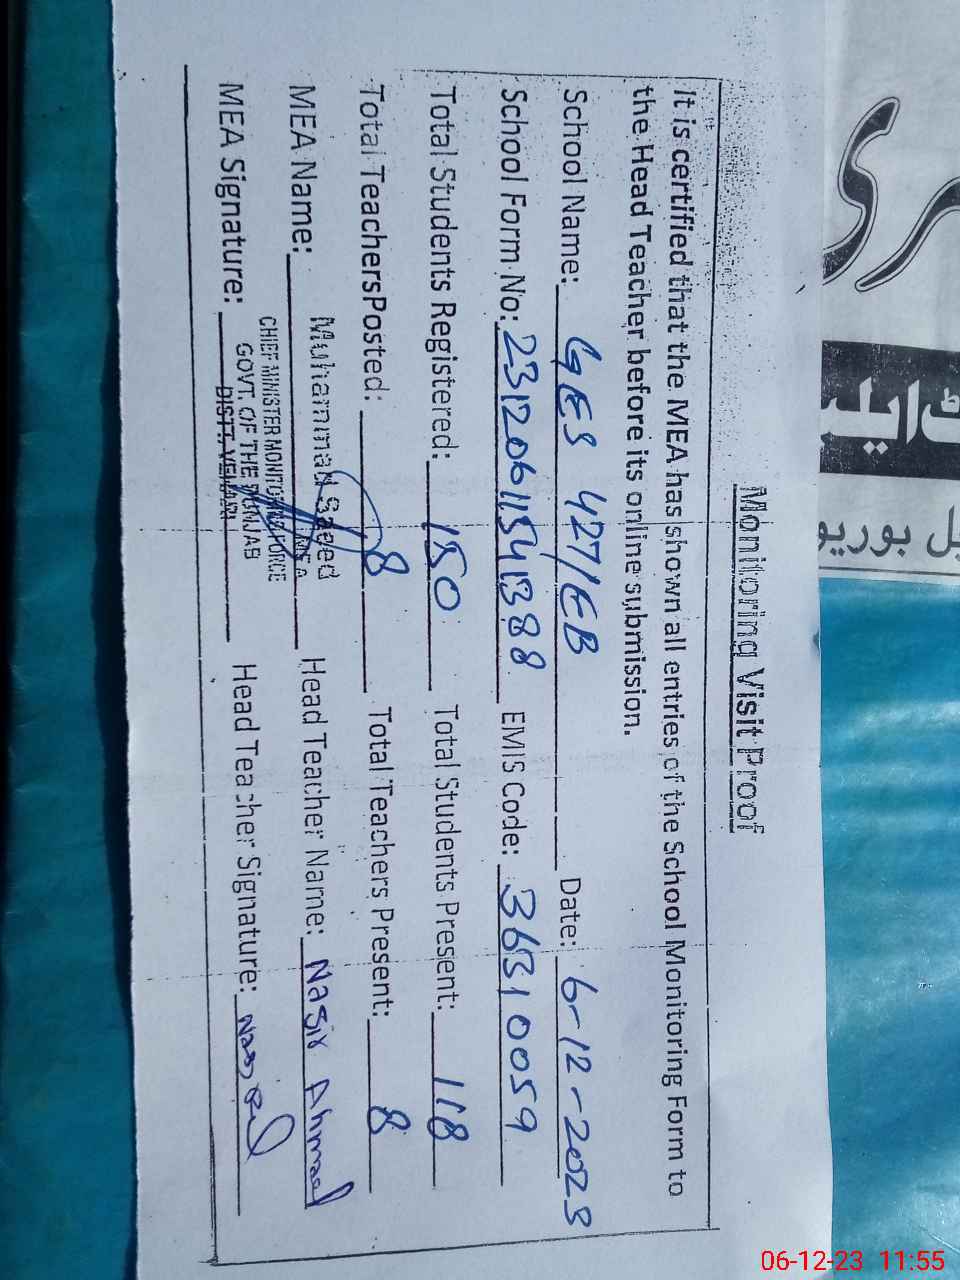 Monitoring Visit Proof
It is certified that the MEA has shown all entries of the School Monitoring Form to
the Head Teacher before its online submission.
School Name: GES 427/EB Date: 6-12-2023
School Form No: 23120611541388 EMIS Code: 36310059
Total Students Registered: 150 Total Students Present: 118
Total TeachersPosted: 8 Total Teachers Present: 8
MEA Name: Muhammad Saeed Head Teacher Name: Nasir Ahmad
MEA
CHIEF MINISTER MONITORING FORCE
GOVT. OF THE PUNJAB
DISTT. VEHARI
MEA Signature: Head Teacher Signature:
06-12-23 11:55